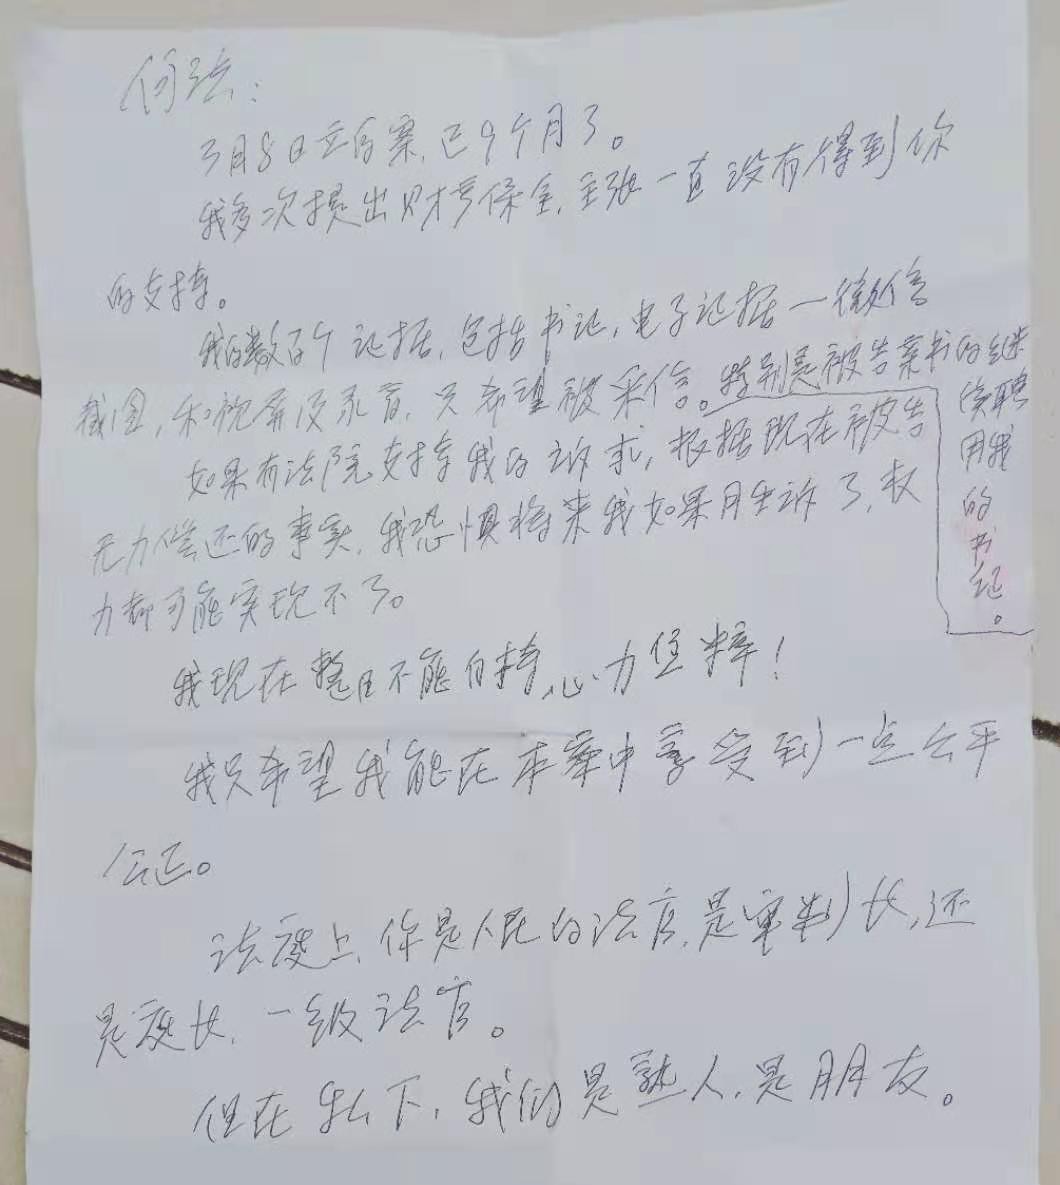 何法:
3月8日立的案,已9个月了。
我多次提出财产保全,主张一直没有得到你
的支持。
我的数百个证据,包括书记,电子证据一微信
截图,和视屏及录音,只希望被采信。特别是被告亲书的继
续聘
用我
的
书
记。
如果有法院支持我的诉求,根据现在被告
无力偿还的事实,我恐惧将来我如果月生诉了,权
力都可能实现不了。
我现在整日不能自持,心力
我只希望我能在本案中享受到一点公平
公正。
法庭上,你是人民的法官,是审判长,还
是庭长,一级法官。
但在私下,我们是熟人,是朋友。